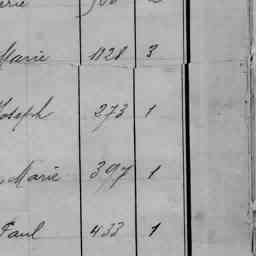 Marie 1128 3
Joseph 273 1
Marie 397 1
Paul 433 1